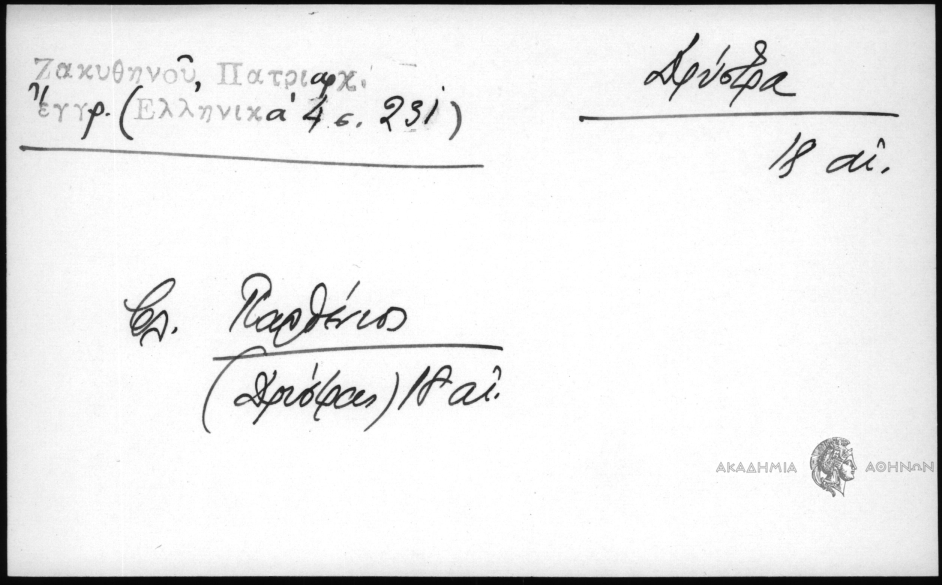 Ζακυθηνοῦ, Πατριαρχ.
ἔγγρ. (Ἑλληνικά 4 σ. 231)
Δρύστρα
18 αἰ.
Βλ. Παρθένιος
(Δρίστρας) 18 αἰ.
ΑΚΑΔΗΜΙΑ ΑΘΗΝΩΝ